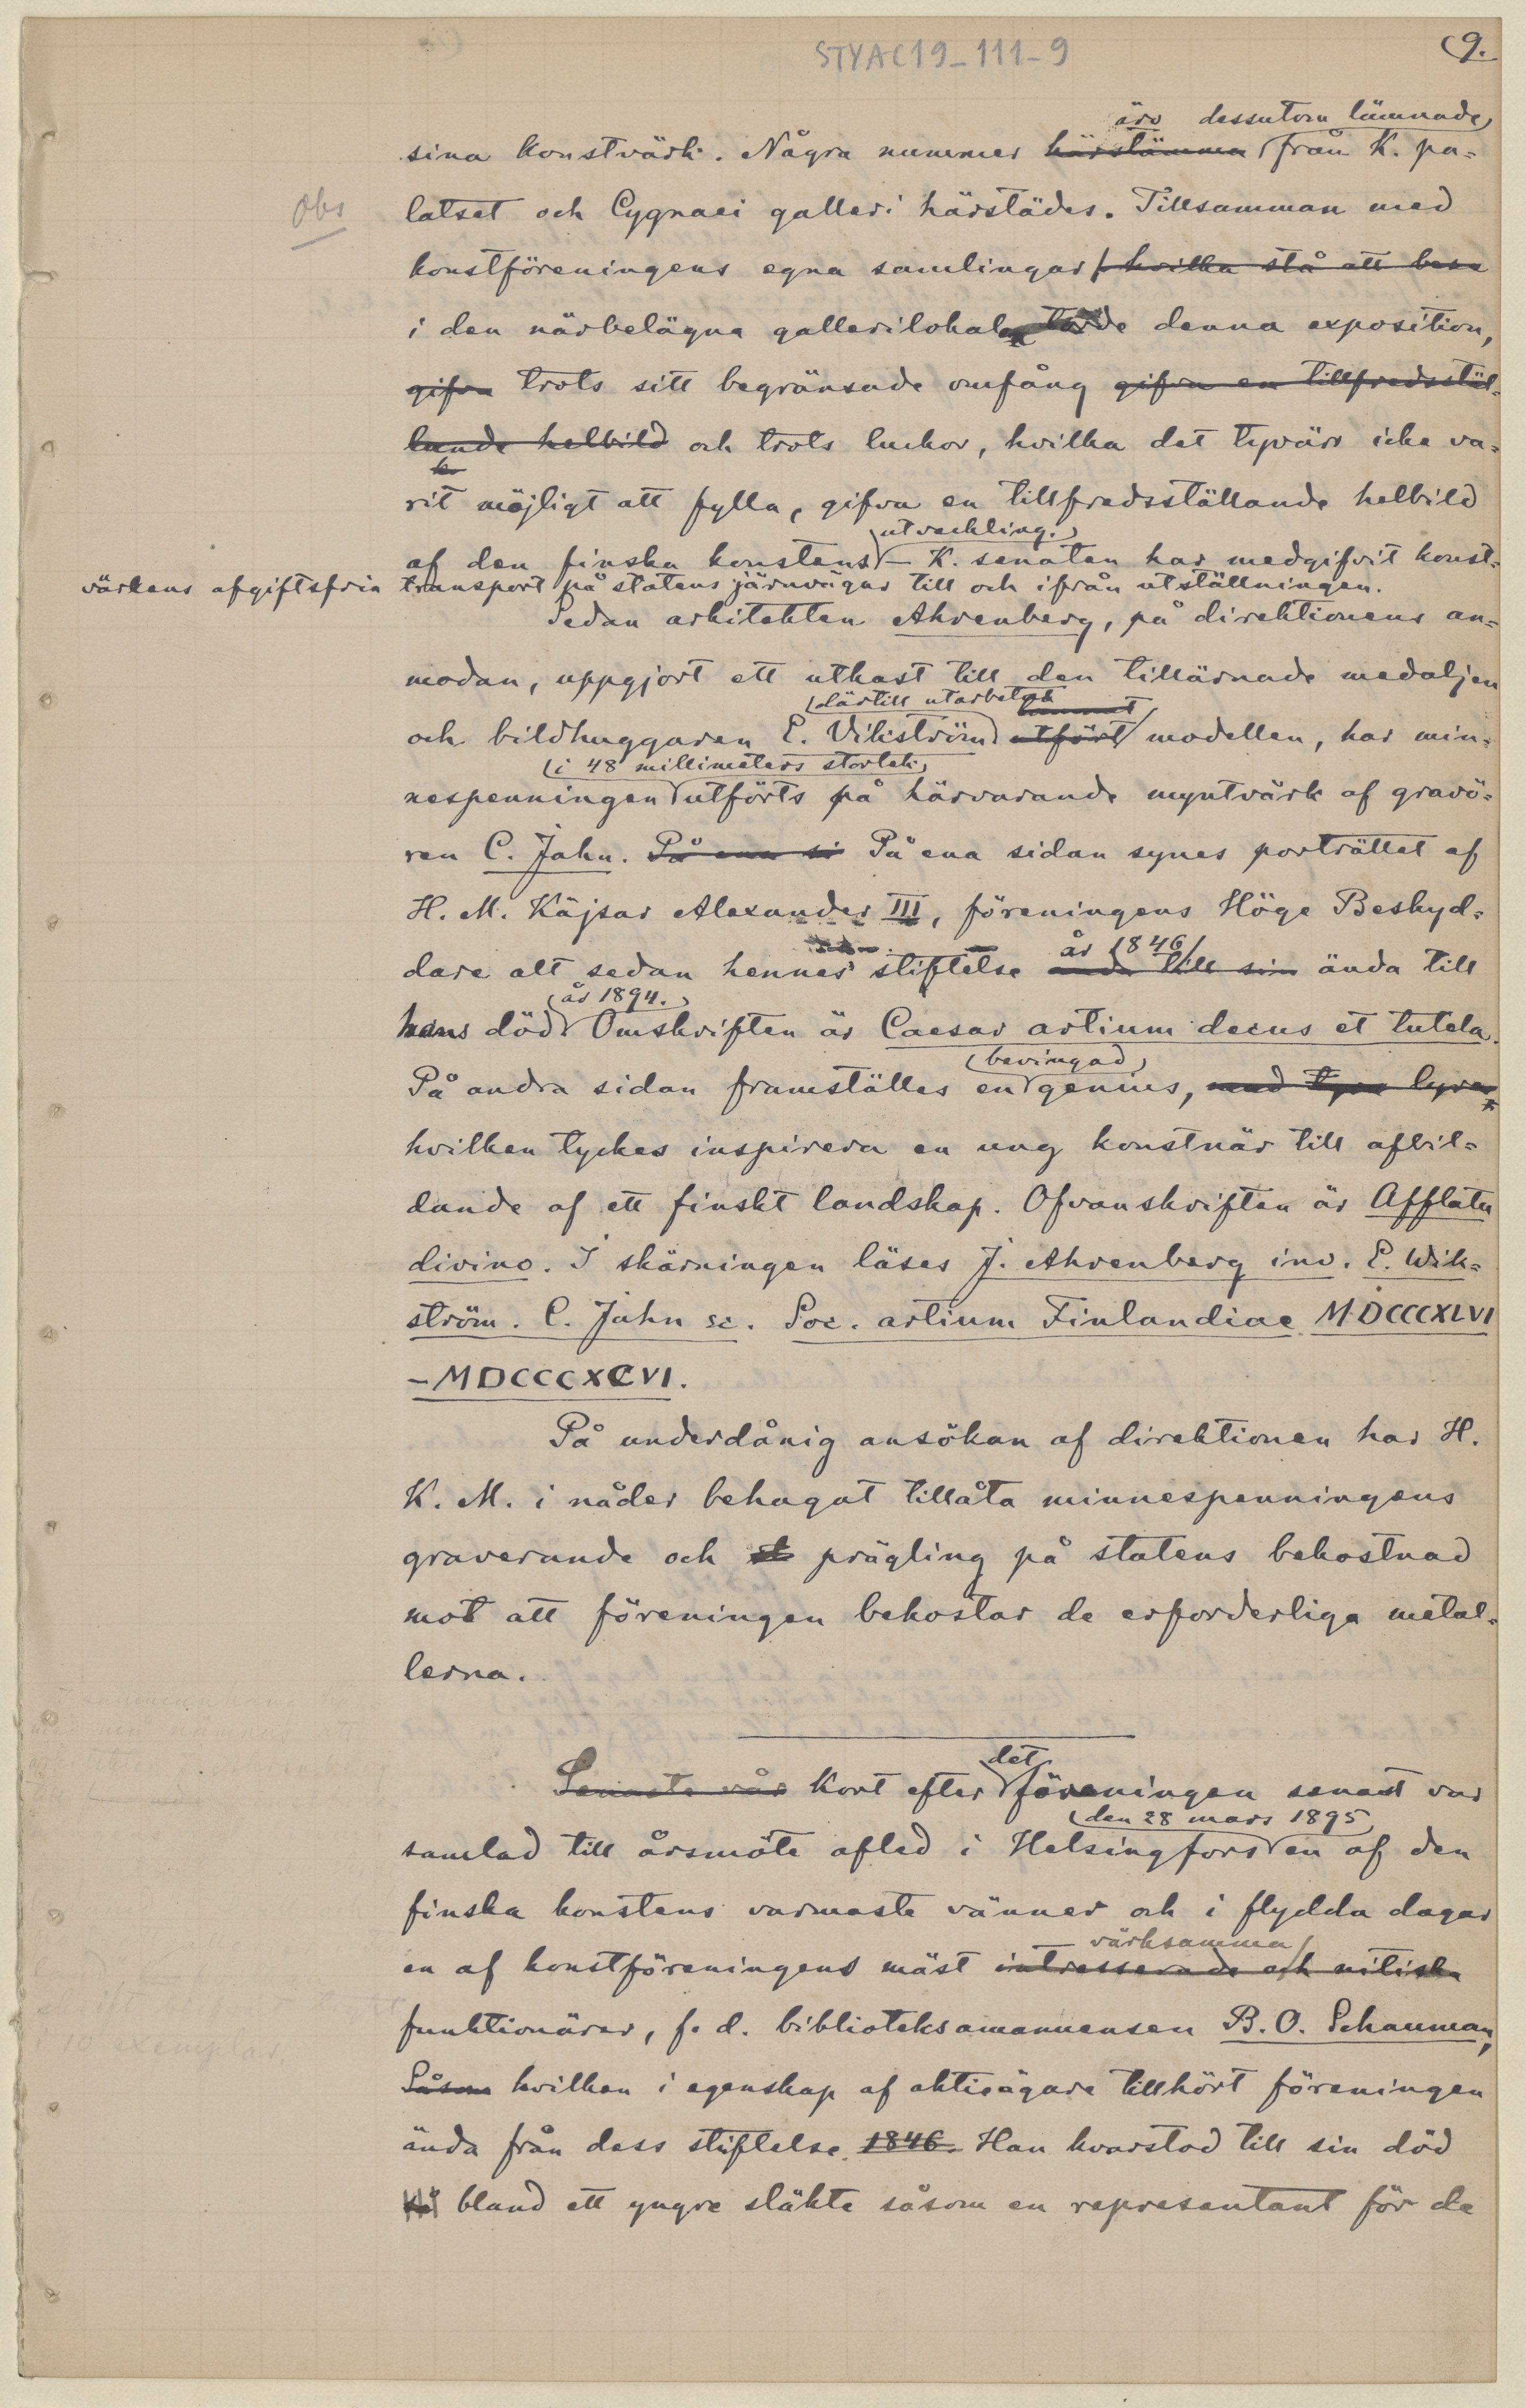 STYAC19_111-9
(9.
äro dessutom lämnade
sina konstvärk. Några nummer härstämma från K. pa-
Obs
latset och Cygnaei galleri härstädes. Tillsamman med
konstföreningens egna samlingar hvilka stå att bese
i den närbelägna gallerilokalen torde denna exposition,
gifva trots sitt begränsade omfång gifva en tillfredsstäl-
lande helbild och trots luckor, hvilka det tyvärr icke va-
rit möjligt att fylla, gifva en tillfredsställande helbild
utveckling.
af den finska konstens – K. senaten har medgifvit konst-
värkens afgiftsfria transport på statens järnvägar till och ifrån utställningen.
Sedan arkitekten Ahrenberg, på direktionens an-
modan, uppgjort ett utkast till den tillärnade medaljen
därtill utarbetat
och bildhuggaren E. Vikström utfört modellen, har min-
i 48 millimeters storlek
nespenningen utförts på härvarande myntvärk af gravö-
ren C. Jahn. På ena si På ena sidan synes porträttet af
H. M. Käjsar Alexander III, föreningens Höge Beskyd-
år 1846
dare allt sedan hennes stiftelse ända till sin ända till
år 1894.
hans död Omskriften är Caesar artium decus et tutela.
bevingad
På andra sidan framställes en genius, med lyra lyran
hvilken tyckes inspirera en ung konstnär till afbil-
dande af ett finskt landskap. Ofvanskriften är Afflatu
divino. I skärningen läses J. Ahrenberg inv. E. Wik-
ström. C. Jahn sc. Soc. artium Finlandiae MDCCCXLVI
–MDCCCXCVI.
På underdånig ansökan af direktionen har H.
K. M. i nåder behagat tillåta minnespenningens
graverande och prägling på statens bekostnad
mot att föreningen bekostar de erforderliga metal-
lerna.
det
Senaste vår Kort efter föreningen senast var
den 28 mars 1895
samlad till årsmöte afled i Helsingfors en af den
finska konstens varmaste vänner och i flydda dagar
värksamma
en af konstföreningens mäst intresserade och nitiska
funktionärer, f. d. biblioteksamanuensen B. O. Schauman,
Såsom hvilken i egenskap af aktieägare tillhört föreningen
ända från dess stiftelse. 1846. Han kvarstod till sin död
bland ett yngre släkte såsom en representant för de
i 10 exemplar